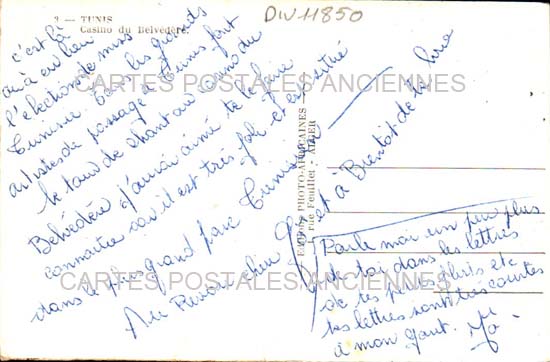 DIV11850
2 — TUNIS
Casino du Belvédère.
CARTES POSTALES ANCIENNES
CARTES POSTALES ANCIENNES
c'est là
où à eu lieu
l'élection de miss
Tunisie les grands
artistes de passage à Tunis font
le tour de chant au casino du
Belvédère j'aurai aimé te le faire
connaitre car il est très joli et est situé
dans le plus grand parc Tunisien
Au Revoir cher
et à Bientôt de te lire
Parle moi un peu plus
de toi dans les lettres
de tes petits flirts etc
tes lettres sont très courtes
à mon gout.
PHOTO-AFRICAINES —
rue Feuillet - ALGER